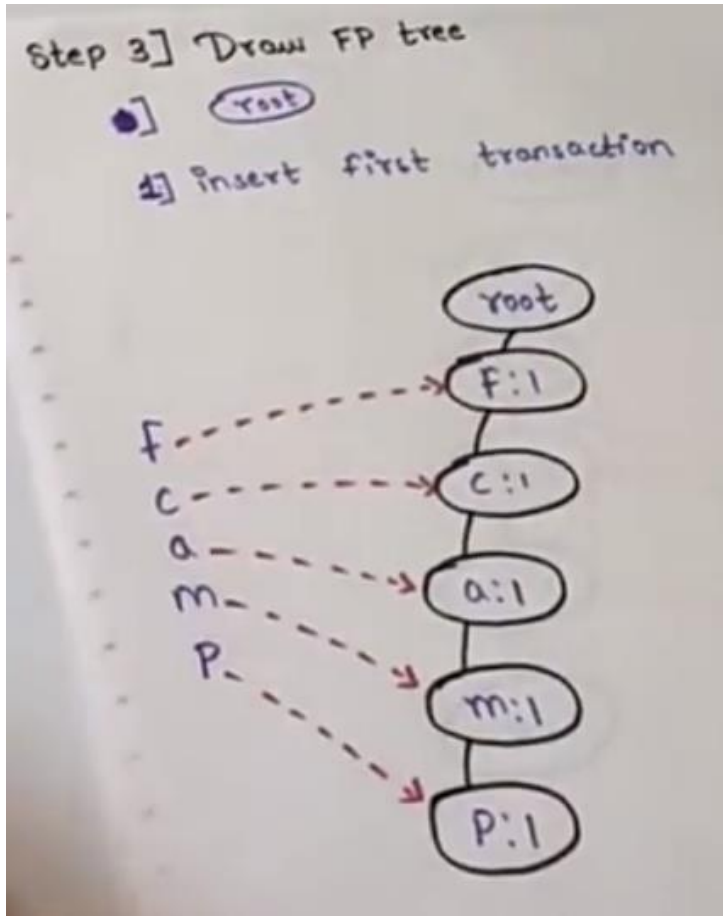 Step 3] Draw FP tree
●] root
1] insert first transaction
root
f
F:1
c
c:1
a
a:1
m
m:1
P
P:1